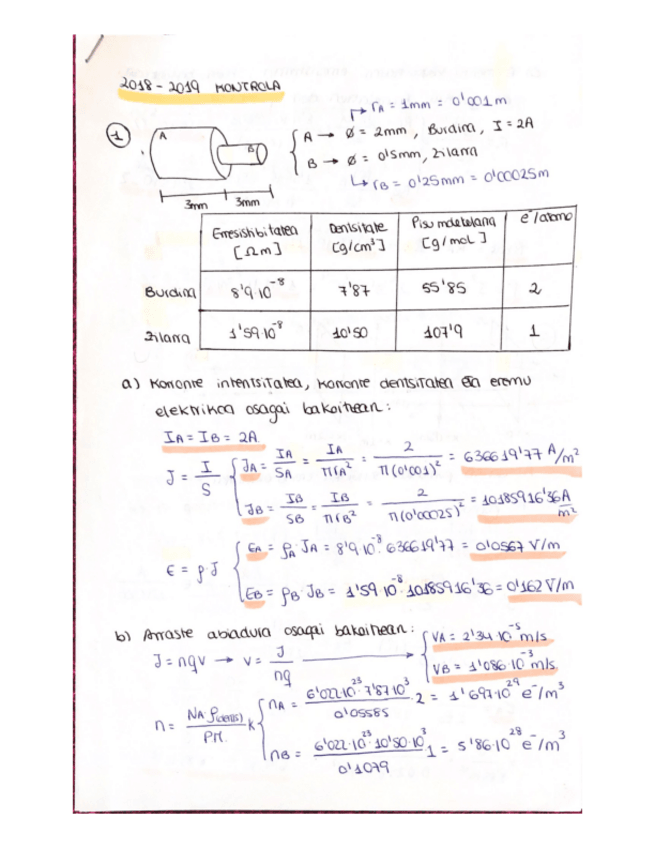 2018-2019 KONTROLA
rA = 1mm = 0'001m
1
A
B
A → Ø = 2mm, Burdina, I = 2A
B → Ø = 0'5mm, Zilarra
rB = 0'25mm = 0'00025m
3mm 3mm
Erresistibitatea [Ωm] Dentsitate [g/cm³] Pisu molekularra [g/mol] e⁻/atomo
Burdina 8'9·10⁻⁸ 7'87 55'85 2
Zilarra 1'59·10⁻⁸ 10'50 107'9 1
a) Korronte intentsitatea, korronte dentsitatea eta eremu
elektrikoa osagai bakoitzean:
IA = IB = 2A
J = I/S
JA = IA/SA = IA/πrA² = 2/π(0'001)² = 636619'77 A/m²
JB = IB/SB = IB/πrB² = 2/π(0'00025)² = 10185916'36 A/m²
ε = ρ·J
εA = ρA·JA = 8'9·10⁻⁸·636619'77 = 0'0567 V/m
εB = ρB·JB = 1'59·10⁻⁸·10185916'36 = 0'162 V/m
b) Arraste abiadura osagai bakoitzean:
VA = 2'34·10⁻⁵ m/s
J = nqv → v = J/nq →
VB = 1'086·10⁻³ m/s
n = NA·ρ(dents)/PM · k
nA = 6'022·10²³·7'87·10³/0'05585 · 2 = 1'697·10²⁹ e⁻/m³
nB = 6'022·10²³·10'50·10³/0'1079 · 1 = 5'86·10²⁸ e⁻/m³